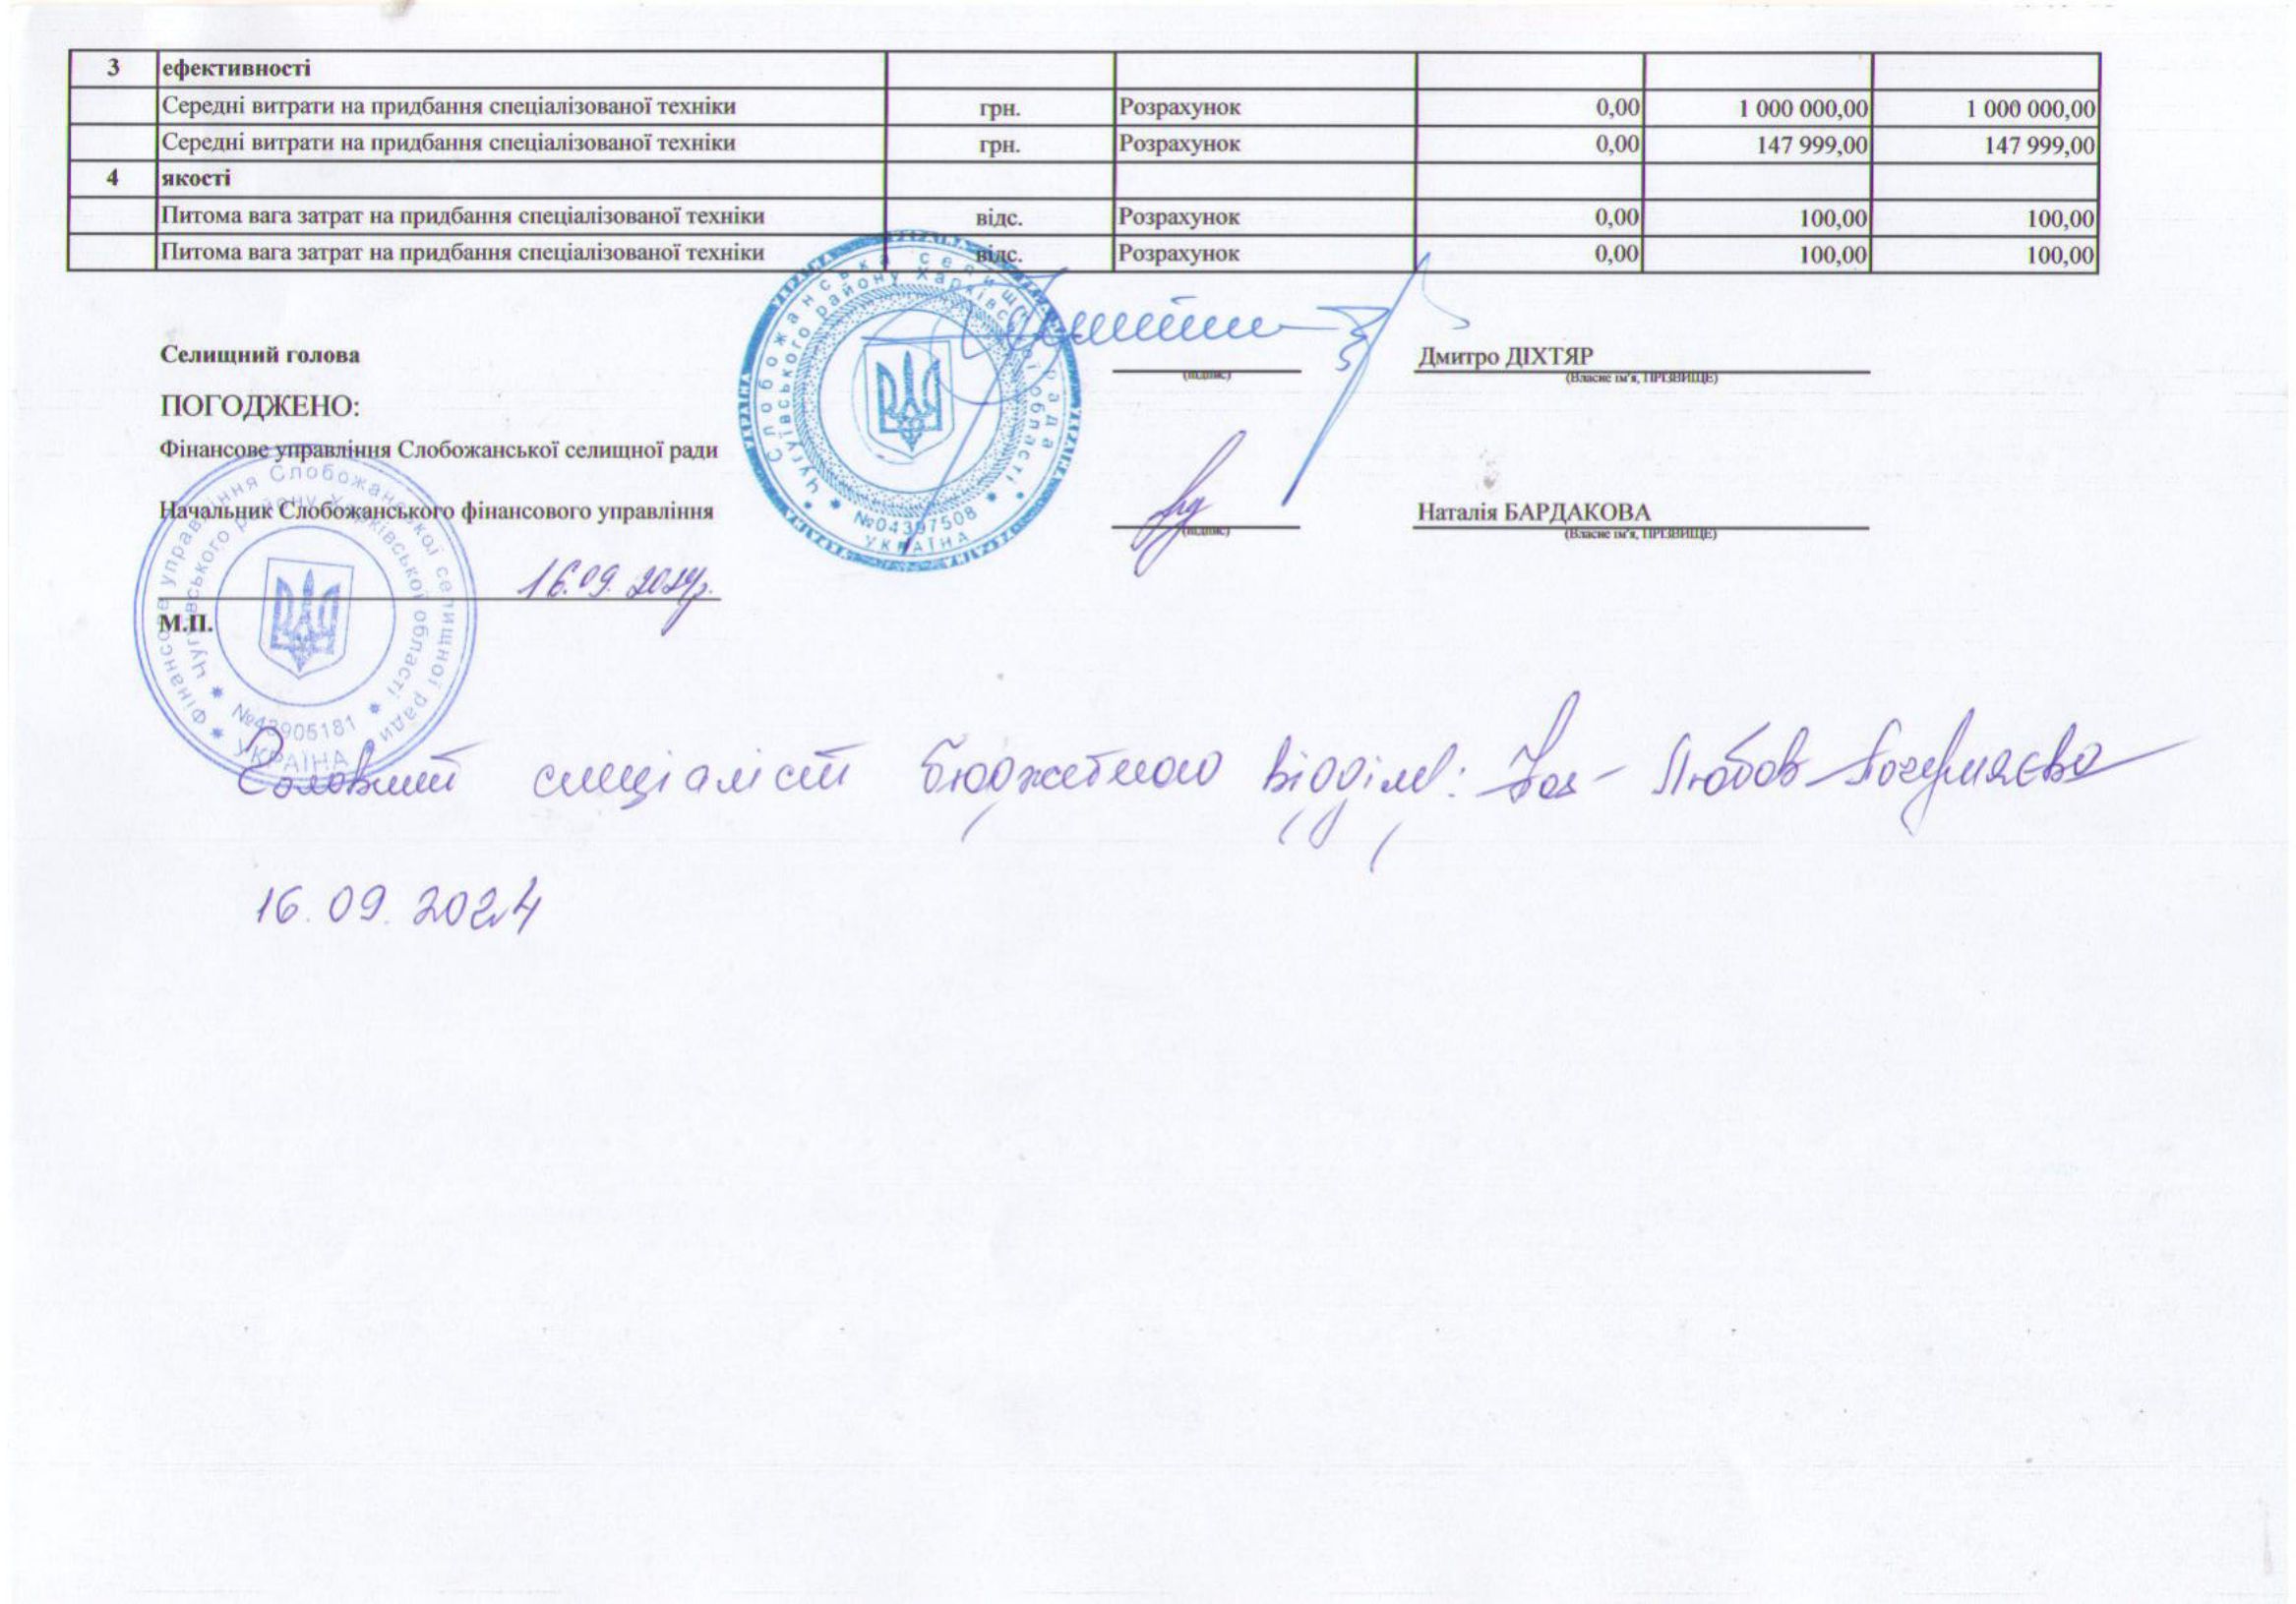 3 ефективності
Середні витрати на придбання спеціалізованої техніки грн. Розрахунок 0,00 1 000 000,00 1 000 000,00
Середні витрати на придбання спеціалізованої техніки грн. Розрахунок 0,00 147 999,00 147 999,00
4 якості
Питома вага затрат на придбання спеціалізованої техніки відс. Розрахунок 0,00 100,00 100,00
Питома вага затрат на придбання спеціалізованої техніки відс. Розрахунок 0,00 100,00 100,00
Селищний голова Дмитро ДІХТЯР
(підпис) (Власне ім'я, ПРІЗВИЩЕ)
ПОГОДЖЕНО:
Фінансове управління Слобожанської селищної ради
Начальник Слобожанського фінансового управління Наталія БАРДАКОВА
(підпис) (Власне ім'я, ПРІЗВИЩЕ)
16.09.2024р.
М.П.
Слобожанська селищна рада
Чугуївського району Харківської області
№04397508
УКРАЇНА
Фінансове управління Слобожанської селищної ради
Чугуївського району Харківської області
№43905181
УКРАЇНА
Головний спеціаліст бюджетного відділу: Любов
16.09.2024